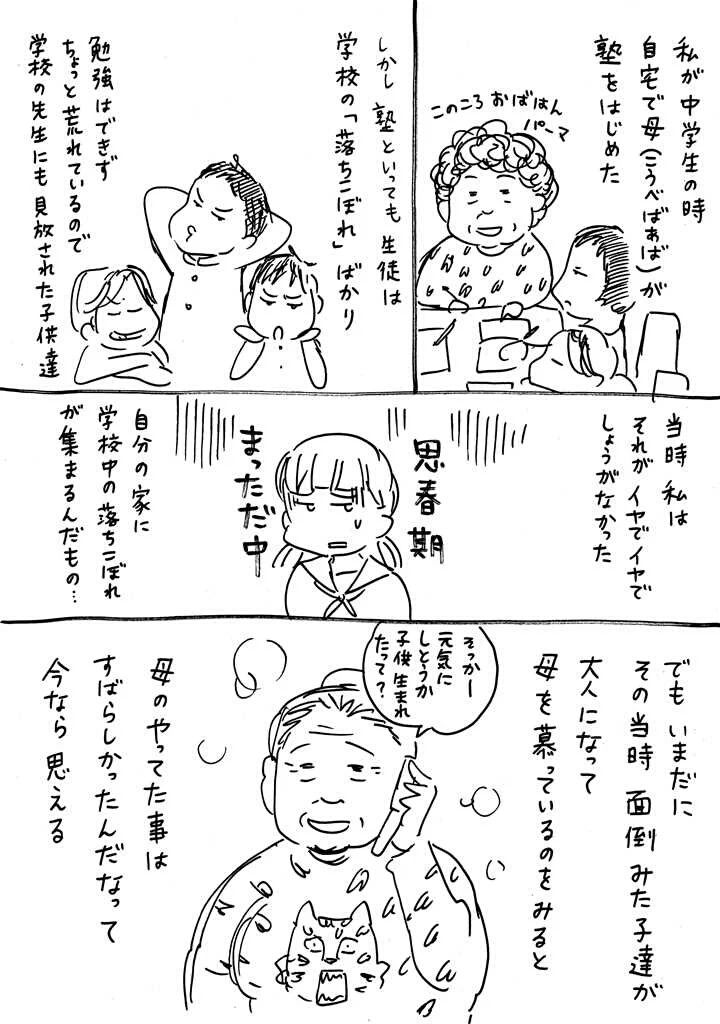 私が中学生の時
自宅で母(こうべばぁば)が
塾をはじめた
このころ おばはん
パーマ
しかし 塾といっても 生徒は
学校の「落ちこぼれ」ばかり
勉強はできず
ちょっと荒れているので
学校の先生にも見放された子供達
当時 私は
それが イヤで イヤで
しょうがなかった
思春期
まっただ中
自分の家に
学校中の落ちこぼれ
が集まるんだもの…
でも いまだに
その当時 面倒 みた子達が
大人になって
母を慕っているのをみると
そっかー
元気に
しとうか
子供生まれ
たって?
母のやってた事は
すばらしかったんだなって
今なら 思える